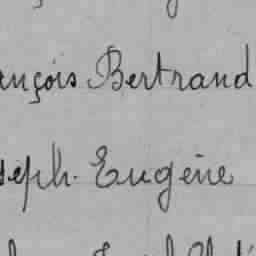 ançois Bertrand
seph. Eugène